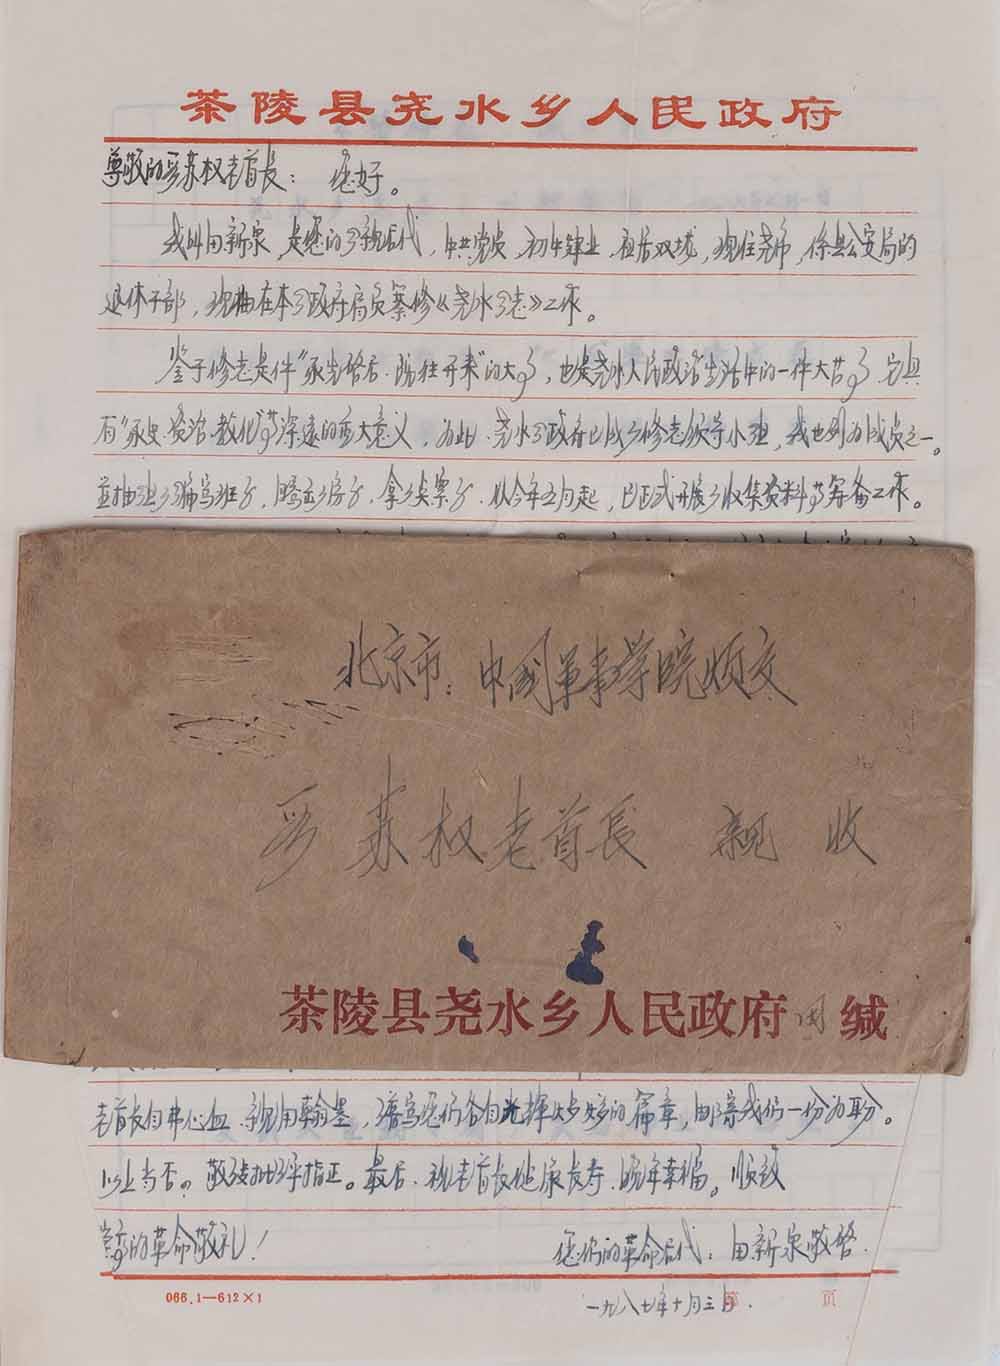 茶陵县尧水乡人民政府
尊敬的晏苏权老首长： 您好。
我叫田新泉，是您的乡亲后代，中共党员，初中肄业，祖居双垅，现住尧市，系县公安局的
退休干部，现抽在本乡政府肩负纂修《尧水乡志》工作。
鉴于修志是件“承先启后、既往开来”的大事，也是尧水人民政治生活中的一件大喜事，它具
有“承史、资治、教化”等深远的重大意义，为此，尧水乡政府已成立修志领导小组，我也列为成员之一。
並抽组了编写班子，腾了房子，拿了桌票子，从今年五月起，已正式开展了收集资料等筹备工作。
北京市：中国军事学院烦交
晏苏权老首长 亲收
茶陵县尧水乡人民政府 田 缄
老首长自费心血、亲用翰墨，谱写您们各自光辉战斗的篇章，邮寄我们一份为盼。
以上当否。敬请批评指正。最后，祝老首长健康长寿，晚年幸福。顺致
崇高的革命敬礼！ 您们的革命后代：田新泉敬启。
066.1—612×1 一九八七年十月三日. 第 页